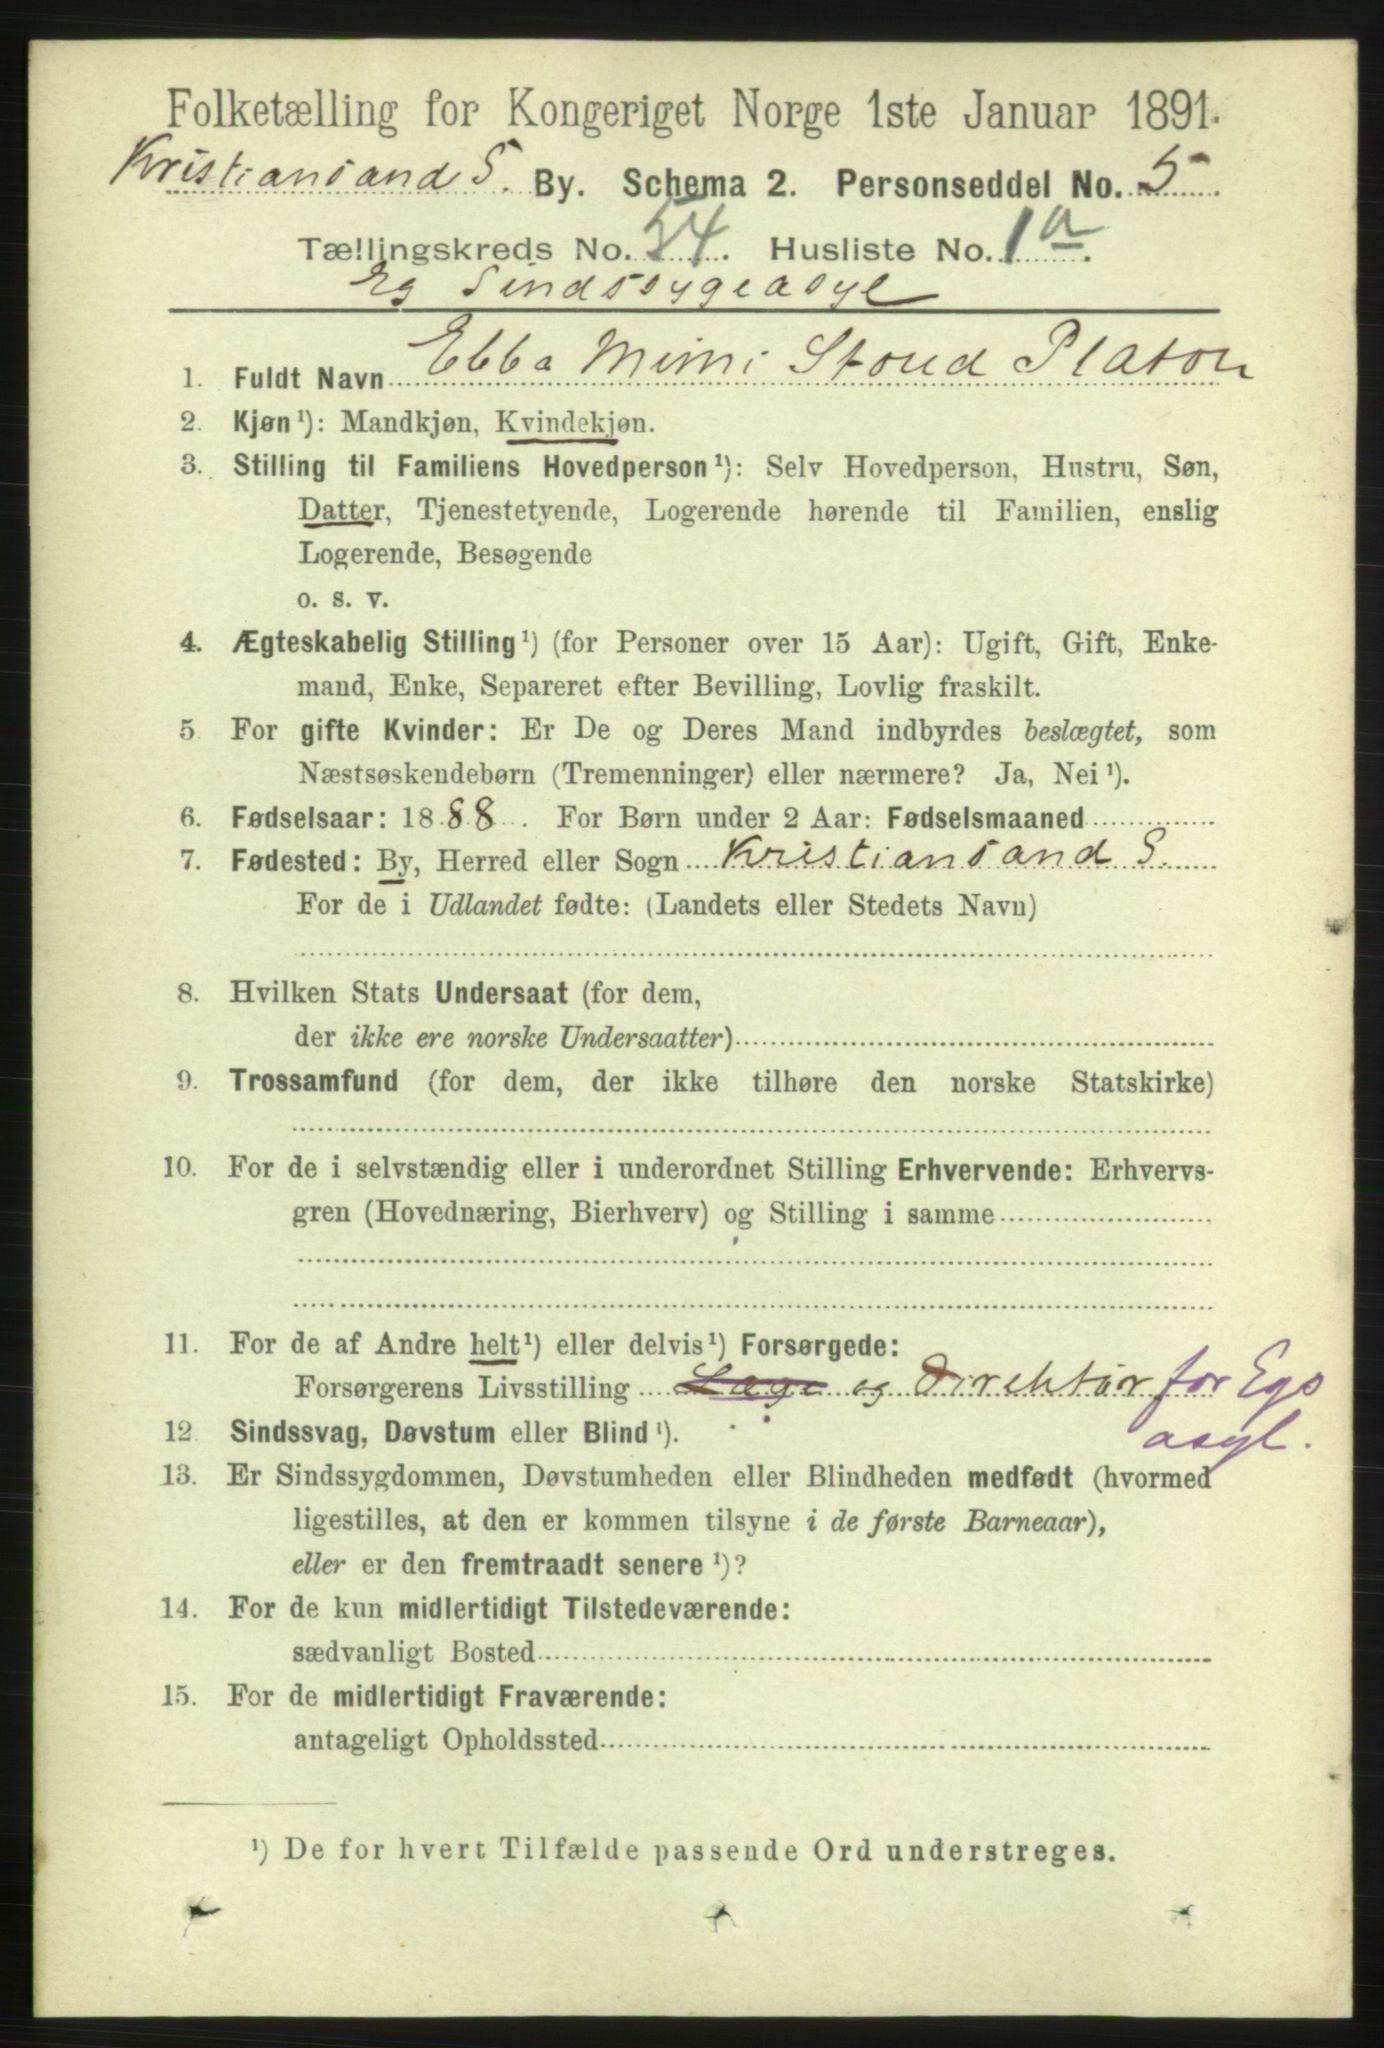 Folketælling for Kongeriget Norge 1ste Januar 1891.
Kristiansand S. By. Schema 2. Personseddel No. 5
Tællingskreds No. 54. Husliste No. 1 a.
Eg Sindssygeasyl
1. Fuldt Navn Ebba Mimi Stoud Platou
2. Kjøn ¹): Mandkjøn, Kvindekjøn.
3. Stilling til Familiens Hovedperson ¹): Selv Hovedperson, Hustru, Søn,
Datter, Tjenestetyende, Logerende hørende til Familien, enslig
Logerende, Besøgende
o. s. v.
4. Ægteskabelig Stilling ¹) (for Personer over 15 Aar): Ugift, Gift, Enke-
mand, Enke, Separeret efter Bevilling, Lovlig fraskilt.
5. For gifte Kvinder: Er De og Deres Mand indbyrdes beslægtet, som
Næstsøskendebørn (Tremenninger) eller nærmere? Ja, Nei ¹).
6. Fødselsaar: 1888. For Børn under 2 Aar: Fødselsmaaned
7. Fødested: By, Herred eller Sogn Kristiansand S.
For de i Udlandet fødte: (Landets eller Stedets Navn)
8. Hvilken Stats Undersaat (for dem,
der ikke ere norske Undersaatter)
9. Trossamfund (for dem, der ikke tilhøre den norske Statskirke)
10. For de i selvstændig eller i underordnet Stilling Erhvervende: Erhvervs-
gren (Hovednæring, Bierhverv) og Stilling i samme
11. For de af Andre helt ¹) eller delvis ¹) Forsørgede:
Forsørgerens Livsstilling Læge og Direktør for Egs
asyl.
12. Sindssvag, Døvstum eller Blind ¹).
13. Er Sindssygdommen, Døvstumheden eller Blindheden medfødt (hvormed
ligestilles, at den er kommen tilsyne i de første Barneaar),
eller er den fremtraadt senere ¹)?
14. For de kun midlertidigt Tilstedeværende:
sædvanligt Bosted
15. For de midlertidigt Fraværende:
antageligt Opholdssted
¹) De for hvert Tilfælde passende Ord understreges.